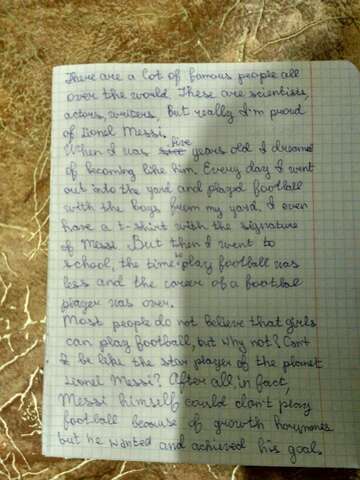 There are a lot of famous people all
over the world. These are scientists,
actors, writers. But really I'm proud
of Lionel Messi.
When I was five years old I dreamed
of becoming like him. Every day I went
out into the yard and played football
with the boys from my yard. I even
have a t-shirt with the signature
of Messi. But then I went to
school, the time to play football was
less and the career of a football
player was over.
Most people do not believe that girls
can play football, but why not? Can't
I be like the star player of the planet
Lionel Messi? After all, in fact,
Messi himself could don't play
football because of growth hormones
but he wanted and achieved his goal.